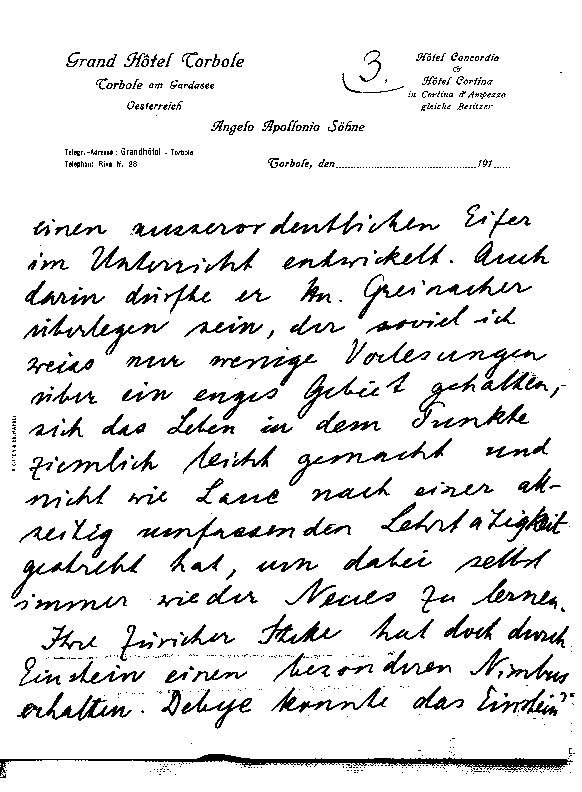 Grand Hôtel Torbole
Torbole am Gardasee
Oesterreich
3.
Hôtel Concordia
&
Hôtel Cortina
in Cortina d'Ampezzo
gleiche Besitzer
Angelo Apollonio Söhne
Telegr.-Adresse: Grandhôtel - Torbole
Telephon: Riva N. 28
Torbole, den 191
einen ausserordentlichen Eifer
im Unterricht entwickelt. Auch
darin dürfte er Hn. Greinacher
überlegen sein, der soviel ich
weiss nur wenige Vorlesungen
über ein enges Gebiet gehalten,
sich das Leben in dem Punkte
ziemlich leicht gemacht und
nicht wie Laue nach einer all-
seitig umfassenden Lehrtätigkeit
gestrebt hat, um dabei selbst
immer wieder Neues zu lernen.
Ihre Züricher Stelle hat doch durch
Einstein einen besonderen Nimbus
erhalten. Debye konnte das Einstein'